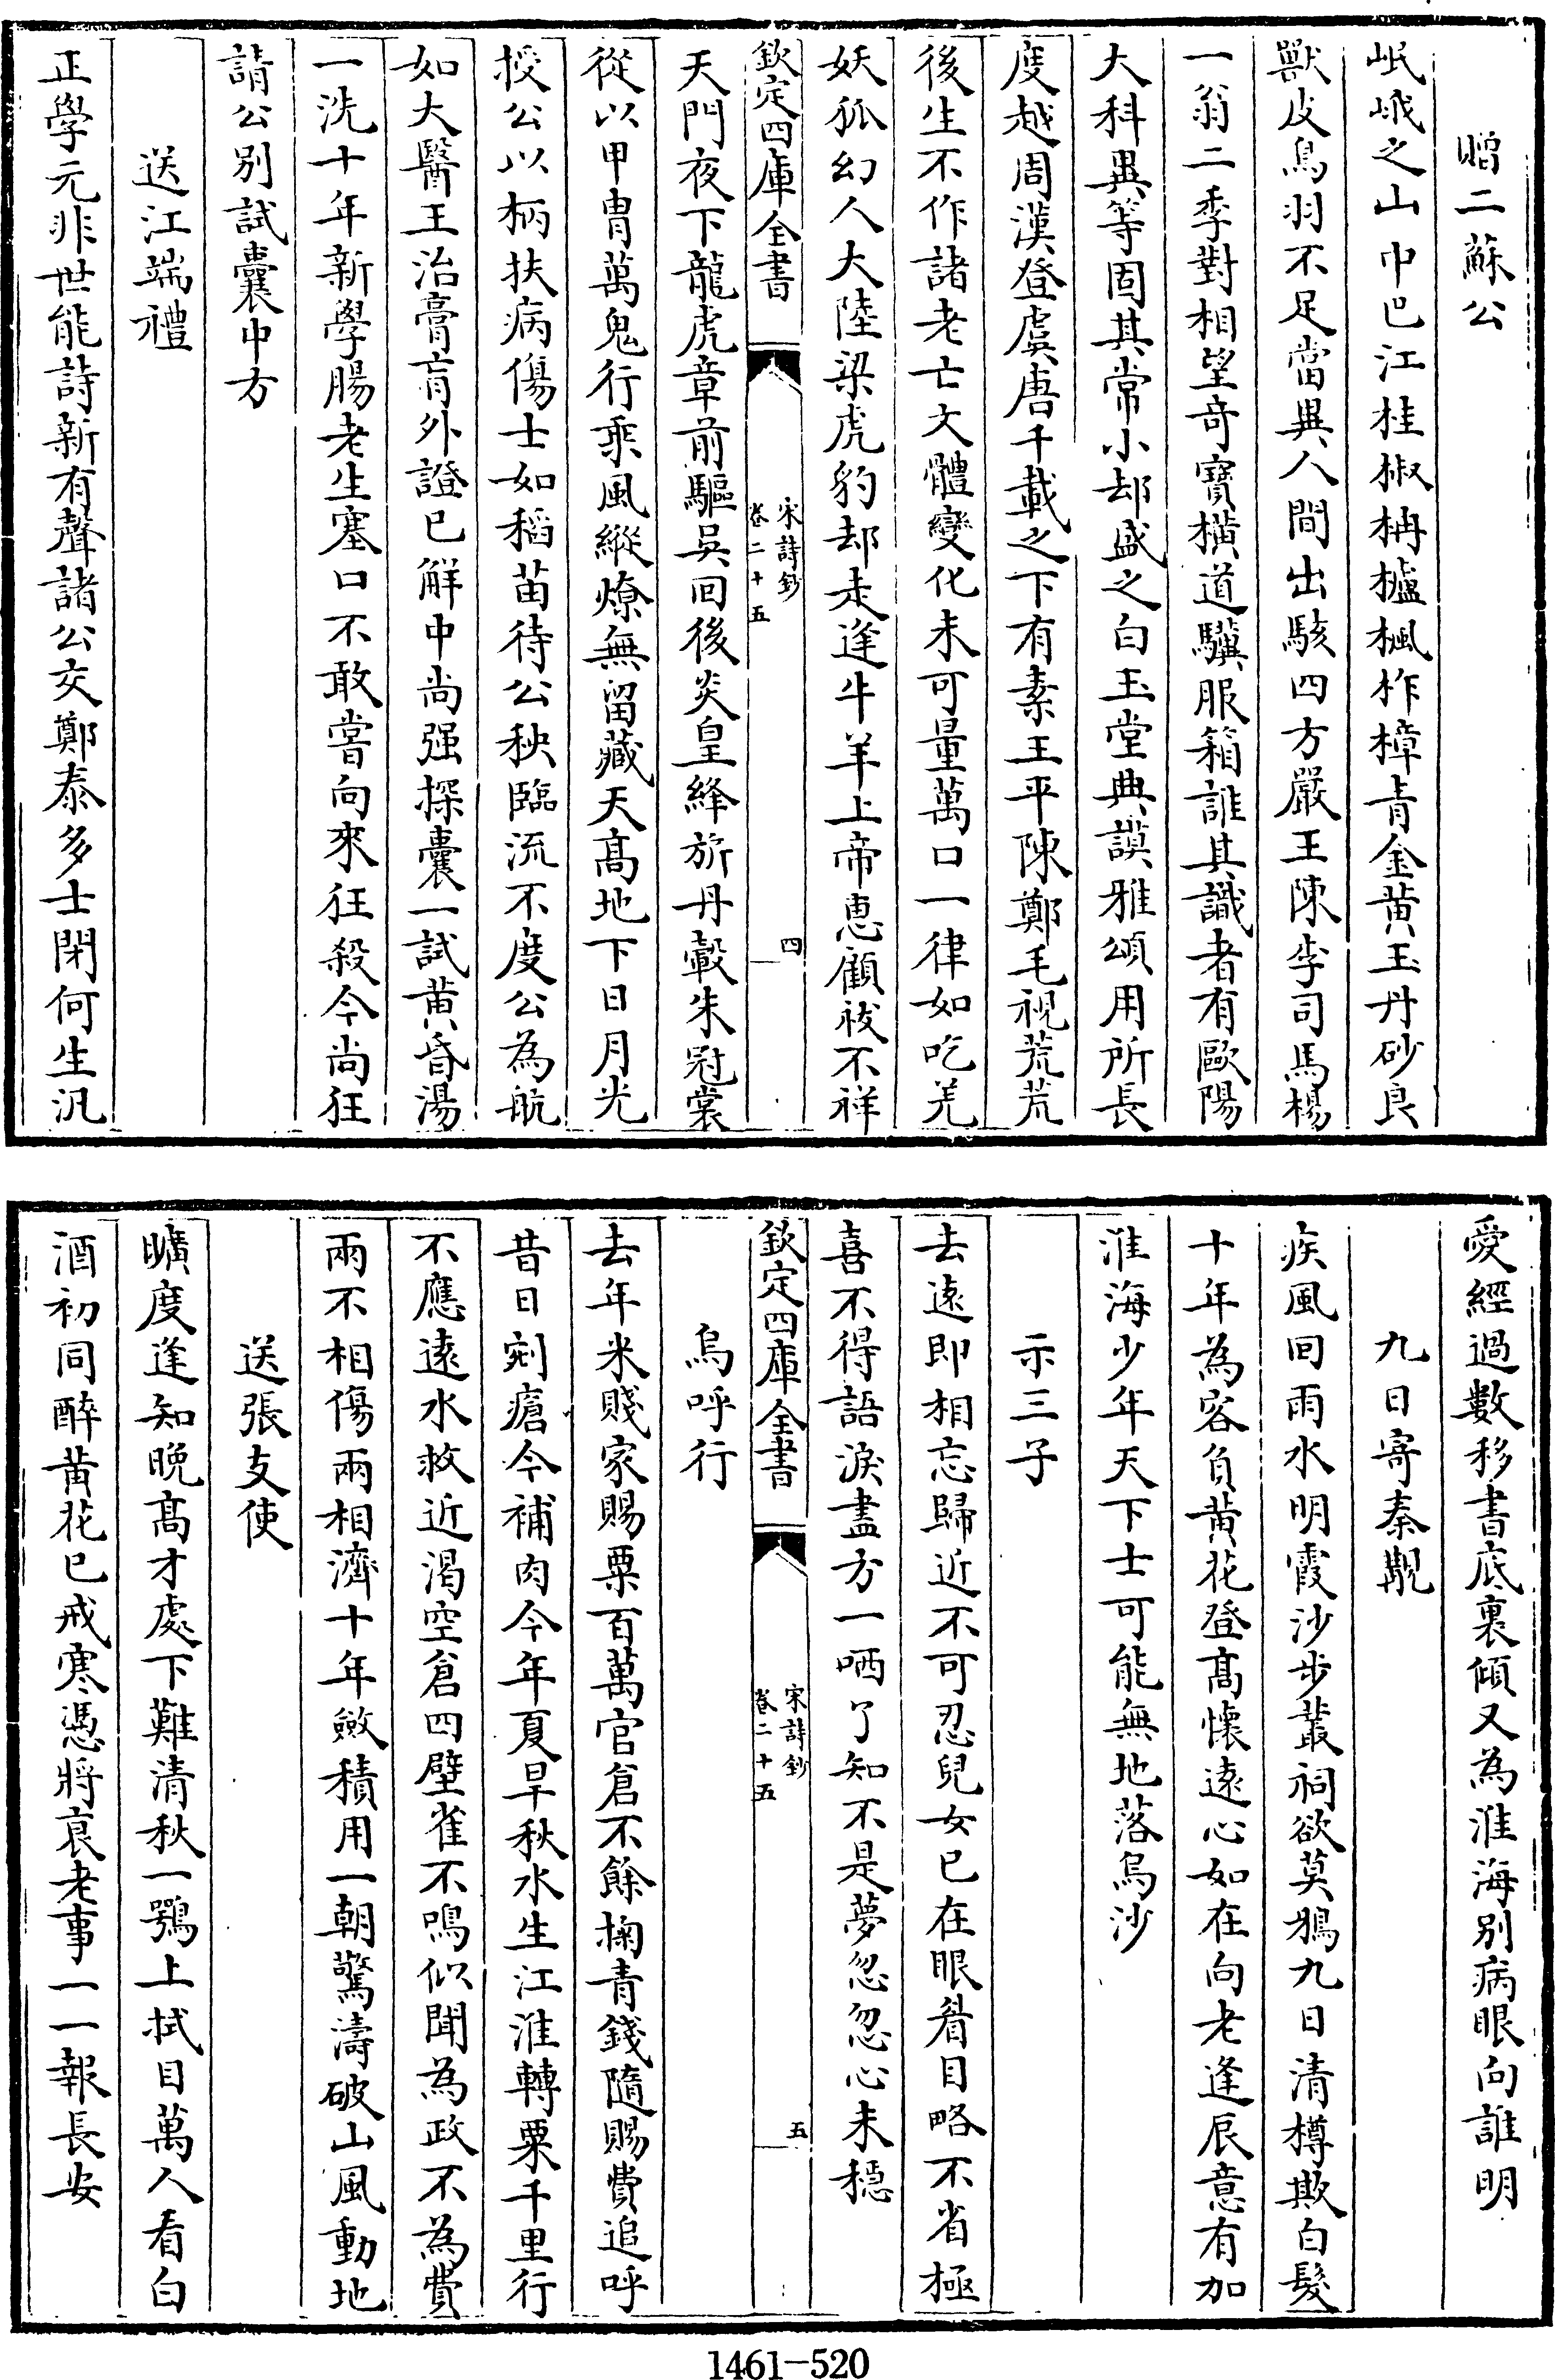 贈二蘇公
岷峨之山中巴江桂椒柟櫨楓柞樟青金黄玉丹砂良
獸皮鳥羽不足當異人間出駭四方嚴王陳李司馬楊
一翁二季對相望竒寶横道驥服箱誰其識者有歐陽
大科異等固其常小却盛之白玉堂典謨雅頌用所長
度越周漢登虞唐千載之下有素王平陳鄭毛視荒荒
後生不作諸老亡文體變化未可量萬口一律如吃羌
妖狐幻人大陸梁虎豹却走逢牛羊上帝惠顧祓不祥
欽定四庫全書
宋詩鈔
卷二十五
四
天門夜下龍虎章前驅吳回後炎皇絳旂丹轂朱冠裳
從以甲胄萬鬼行乘風縱燎無留藏天髙地下日月光
授公以柄扶病傷士如稻苗待公秧臨流不度公為航
如大醫王治膏肓外證已解中尚强探囊一試黄昏湯
一洗十年新學腸老生塞口不敢嘗向來狂殺今尚狂
請公别試囊中方
送江端禮
正學元非世能詩新有聲諸公交鄭泰多士閉何生汎
愛經過數移書底裏傾又為淮海别病眼向誰明
九日寄秦覯
疾風回雨水明霞沙步叢祠欲莫鴉九日清樽欺白髮
十年為客負黄花登髙懷逺心如在向老逢辰意有加
淮海少年天下士可能無地落烏沙
示三子
去逺即相忘歸近不可忍兒女已在眼眉目略不省極
喜不得語淚盡方一哂了知不是夢忽忽心未穩
欽定四庫全書
宋詩鈔
卷二十五
五
烏呼行
去年米賤家賜粟百萬官倉不餘掬青錢隨賜費追呼
昔日剜瘡今補肉今年夏旱秋水生江淮轉粟千里行
不應逺水救近渴空倉四壁雀不鳴似聞為政不為費
兩不相傷兩相濟十年斂積用一朝驚濤破山風動地
送張支使
曠度逢知晩髙才處下難清秋一鶚上拭目萬人看白
酒初同醉黄花已戒寒憑將衰老事一一報長安
1461-520